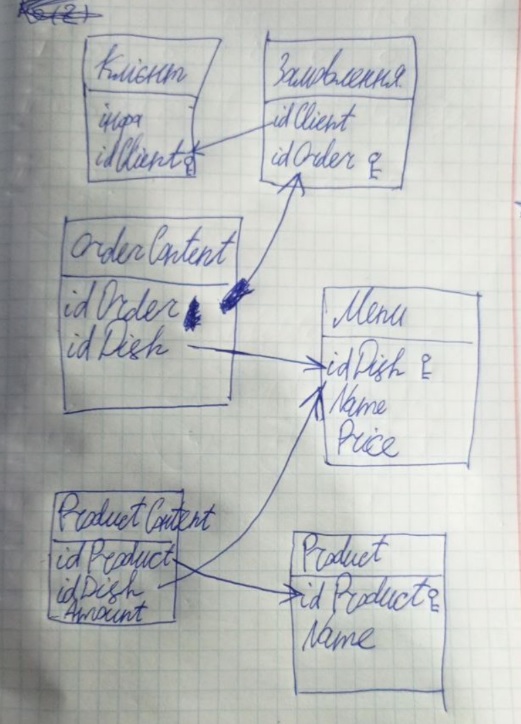 Клієнт
інфа
idClient
Замовлення
idClient
idOrder
OrderContent
idOrder
idDish
Menu
idDish
Name
Price
ProductContent
idProduct
idDish
Amount
Product
idProduct
Name